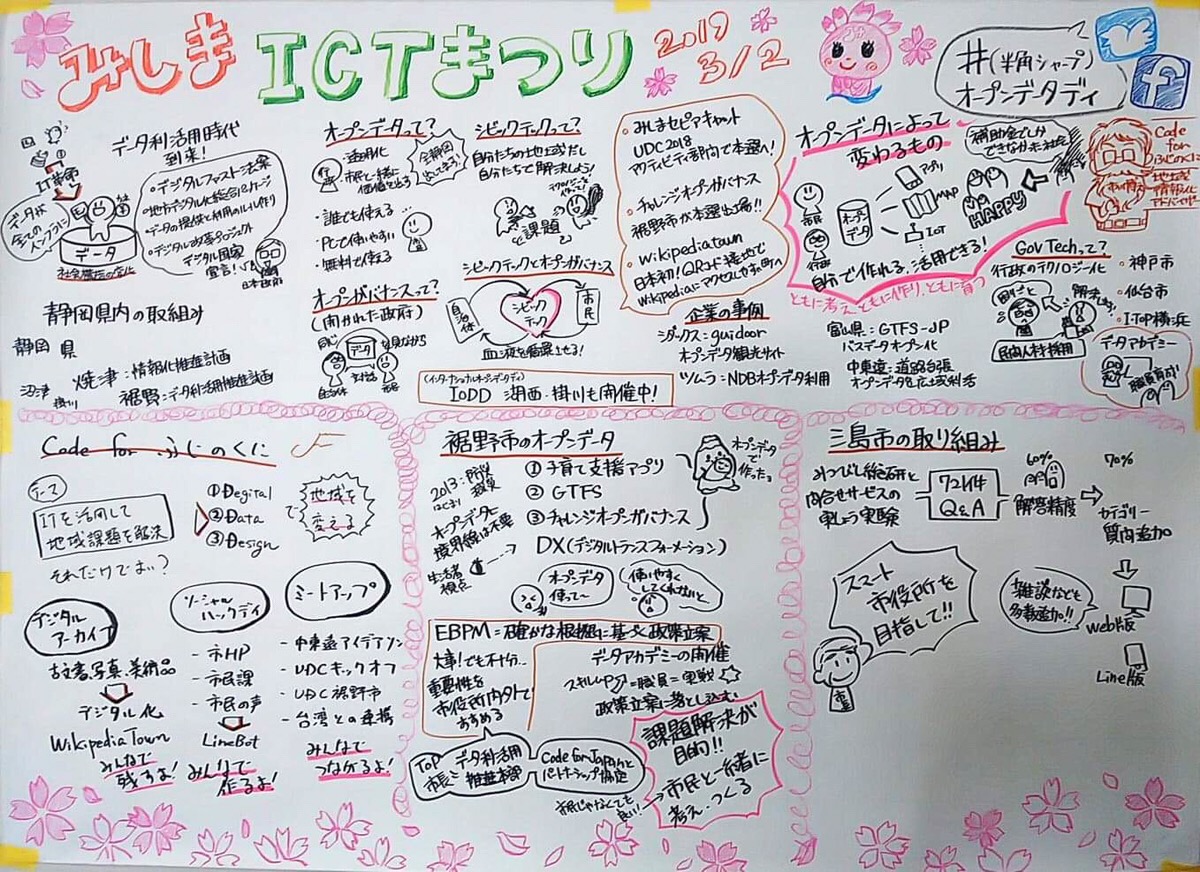 みしまICTまつり
2019
3/2
#(半角シャープ)
オープンデータデイ
データ利活用時代
到来!
IT革命
データが
全ての
インフラに
データ
・デジタルファスト法案
・地方デジタル化総合パッケージ
・データの提供と利用のルール作り
・デジタル改革プロジェクト
デジタル国家
宣言!
日本政府
静岡県内の取組み
静岡県
沼津
掛川
焼津:情報化推進計画
裾野:データ利活用推進計画
オープンデータって?
・透明化
市民と一緒に
価値を出そう
・誰でも使える
・PCで使いやすい
・無料で使える
オープンガバナンスって?
(開かれた政府)
同じ
データ
を見ながら
対話
自治体
市民
シビックテックって?
自分たちの地域がだし
自分たちで解決しよう!
課題
シビックテックとオープンガバナンス
自治体
シビック
テック
市民
血液を循環させる!
(インターナショナルオープンデータデイ)
IoDD 湖西・掛川も開催中!
・みしまセピアキャット
UDC2018
アクティビティ部門で本選へ!
・チャレンジオープンガバナンス
裾野市が本選出場!!
・Wikipediatown
日本初!QRコード接地で
Wikipediaにアクセスしやすい町へ
企業の事例
シダックス:guidoor
オープンデータ観光サイト
ツムラ:NDBオープンデータ利用
オープンデータによって
変わるもの
補助金でしか
できなかった社会が
市民
行政
オープン
データ
アプリ
MAP
IoT
HAPPY
自分で作れる、活用できる!
ともに考え、ともに作り、ともに育つ
富山県:GTFS-JP
バスデータオープン化
中東遠:道路台帳
オープンデータ&広域利活
Code
for
ふじのくに
地域
情報化
アドバイザー
Gov Techって?
行政のテクノロジー化
困りごと
解決
民間人材採用
・神戸市
・仙台市
・I・TOP横浜
データアカデミー
職員育成!
Code for ふじのくに
テーマ
ITを活用して
地域課題を解決
それだけでよい?
①Degital
②Data
③Design
で
地域を
変える
デジタル
アーカイブ
古文書、写真、美術品
デジタル化
WikipediaTown
みんなで
残すよ!
ソーシャル
ハックデイ
- ネHP
- 市民課
- 市民の声
LineBot
みんなで
作るよ!
ミートアップ
- 中東遠アイデアソン
- UDCキックオフ
- UDC裾野市
- 台湾との連携
みんなで
つながるよ!
裾野市のオープンデータ
2013:防災
はじまり
オープンデータに
境界線は不要
生活者
視点
①子育て支援アプリ
② GTFS
③チャレンジオープンガバナンス
オープンデータ
で
作った。
DX(デジタルトランスフォーメーション)
オープンデータ
使って~
使いやすく
してくれないと
EBPM=確かな根拠に基づく政策立案
大事!でも不十分…
重要性を
市役所内外で
すすめる
データアカデミーの開催
スキルup=職員=実戦
政策立案に落とし込む
TOP
市長
データ利活用
推進本部
Code for Japanと
パートナーシップ協定
市民じゃなくても
良い!
課題解決が
目的!!
市民と一緒に
考え・つくる
三島市の取り組み
みつびし総研と
問合せサービスの
実しょう実験
7244
Q&A
60%
解答精度
70%
カテゴリー
質問追加
雑談なども
多数追加!!
Web版
Line版
スマート
市役所を
目指して!!